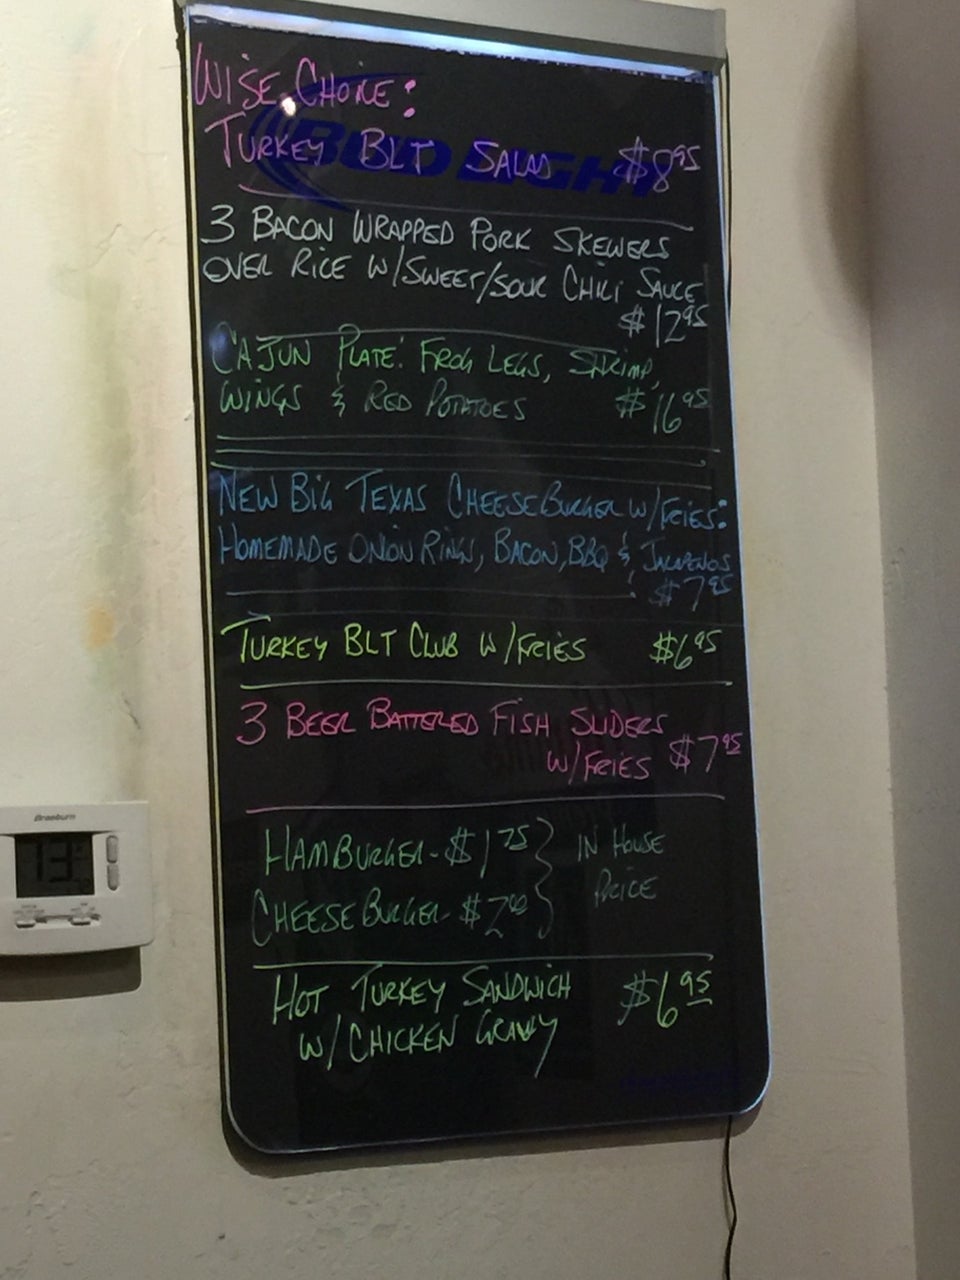 WISE CHOICE:
BUD LIGHT
TURKEY BLT SALAD $8.95
3 BACON WRAPPED PORK SKEWERS
OVER RICE W/SWEET/SOUR CHILI SAUCE
$12.95
CAJUN PLATE: FROG LEGS, SHRIMP,
WINGS & RED POTATOES $16.95
NEW BIG TEXAS CHEESEBURGER W/FRIES:
HOMEMADE ONION RINGS, BACON, BBQ & JALAPENOS
$7.95
TURKEY BLT CLUB W/FRIES $6.95
3 BEER BATTERED FISH SLIDERS
W/FRIES $7.95
HAMBURGER - $1.75 IN HOUSE
CHEESEBURGER - $2.00 PRICE
HOT TURKEY SANDWICH $6.95
W/CHICKEN GRAVY
Braeburn
73